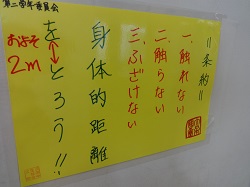 第二学年委員会
〃条約〃
一、触れない
二、触らない
三、ふざけない
身体的距離
をとろう!!
およそ
2m